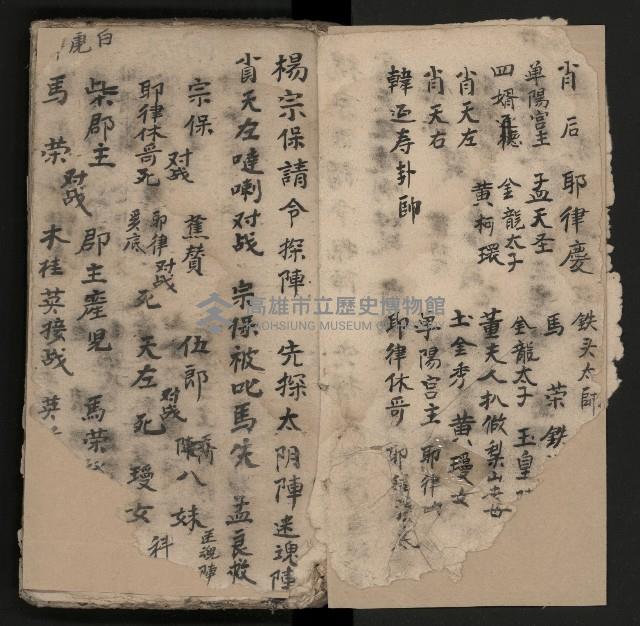 鉄头太師
肖后 耶律慶 馬荣鉄
单陽宫主 孟天圣 金龍太子 玉皇
四婿 金龍太子 董夫人扒做梨山老母
肖天左 黄柯環 土金秀 黄瓊女
肖天右 单陽宫主 耶律
韓延寿卦帥 耶律休哥
楊宗保請令探陣 先探太阴陣迷魂陣
肖天左噠喇对战 宗保被叱馬失 孟良救
宗保 对战 蕉賛 伍郎 八妹 迷魂陣
耶律休哥死 耶律 对战 死 天左死 瓊女
柴郡主 郡主產児 馬荣 科
馬荣 对战 木桂英接战 英
白虎
高雄市立歷史博物館
KAOHSIUNG MUSEUM OF HISTORY